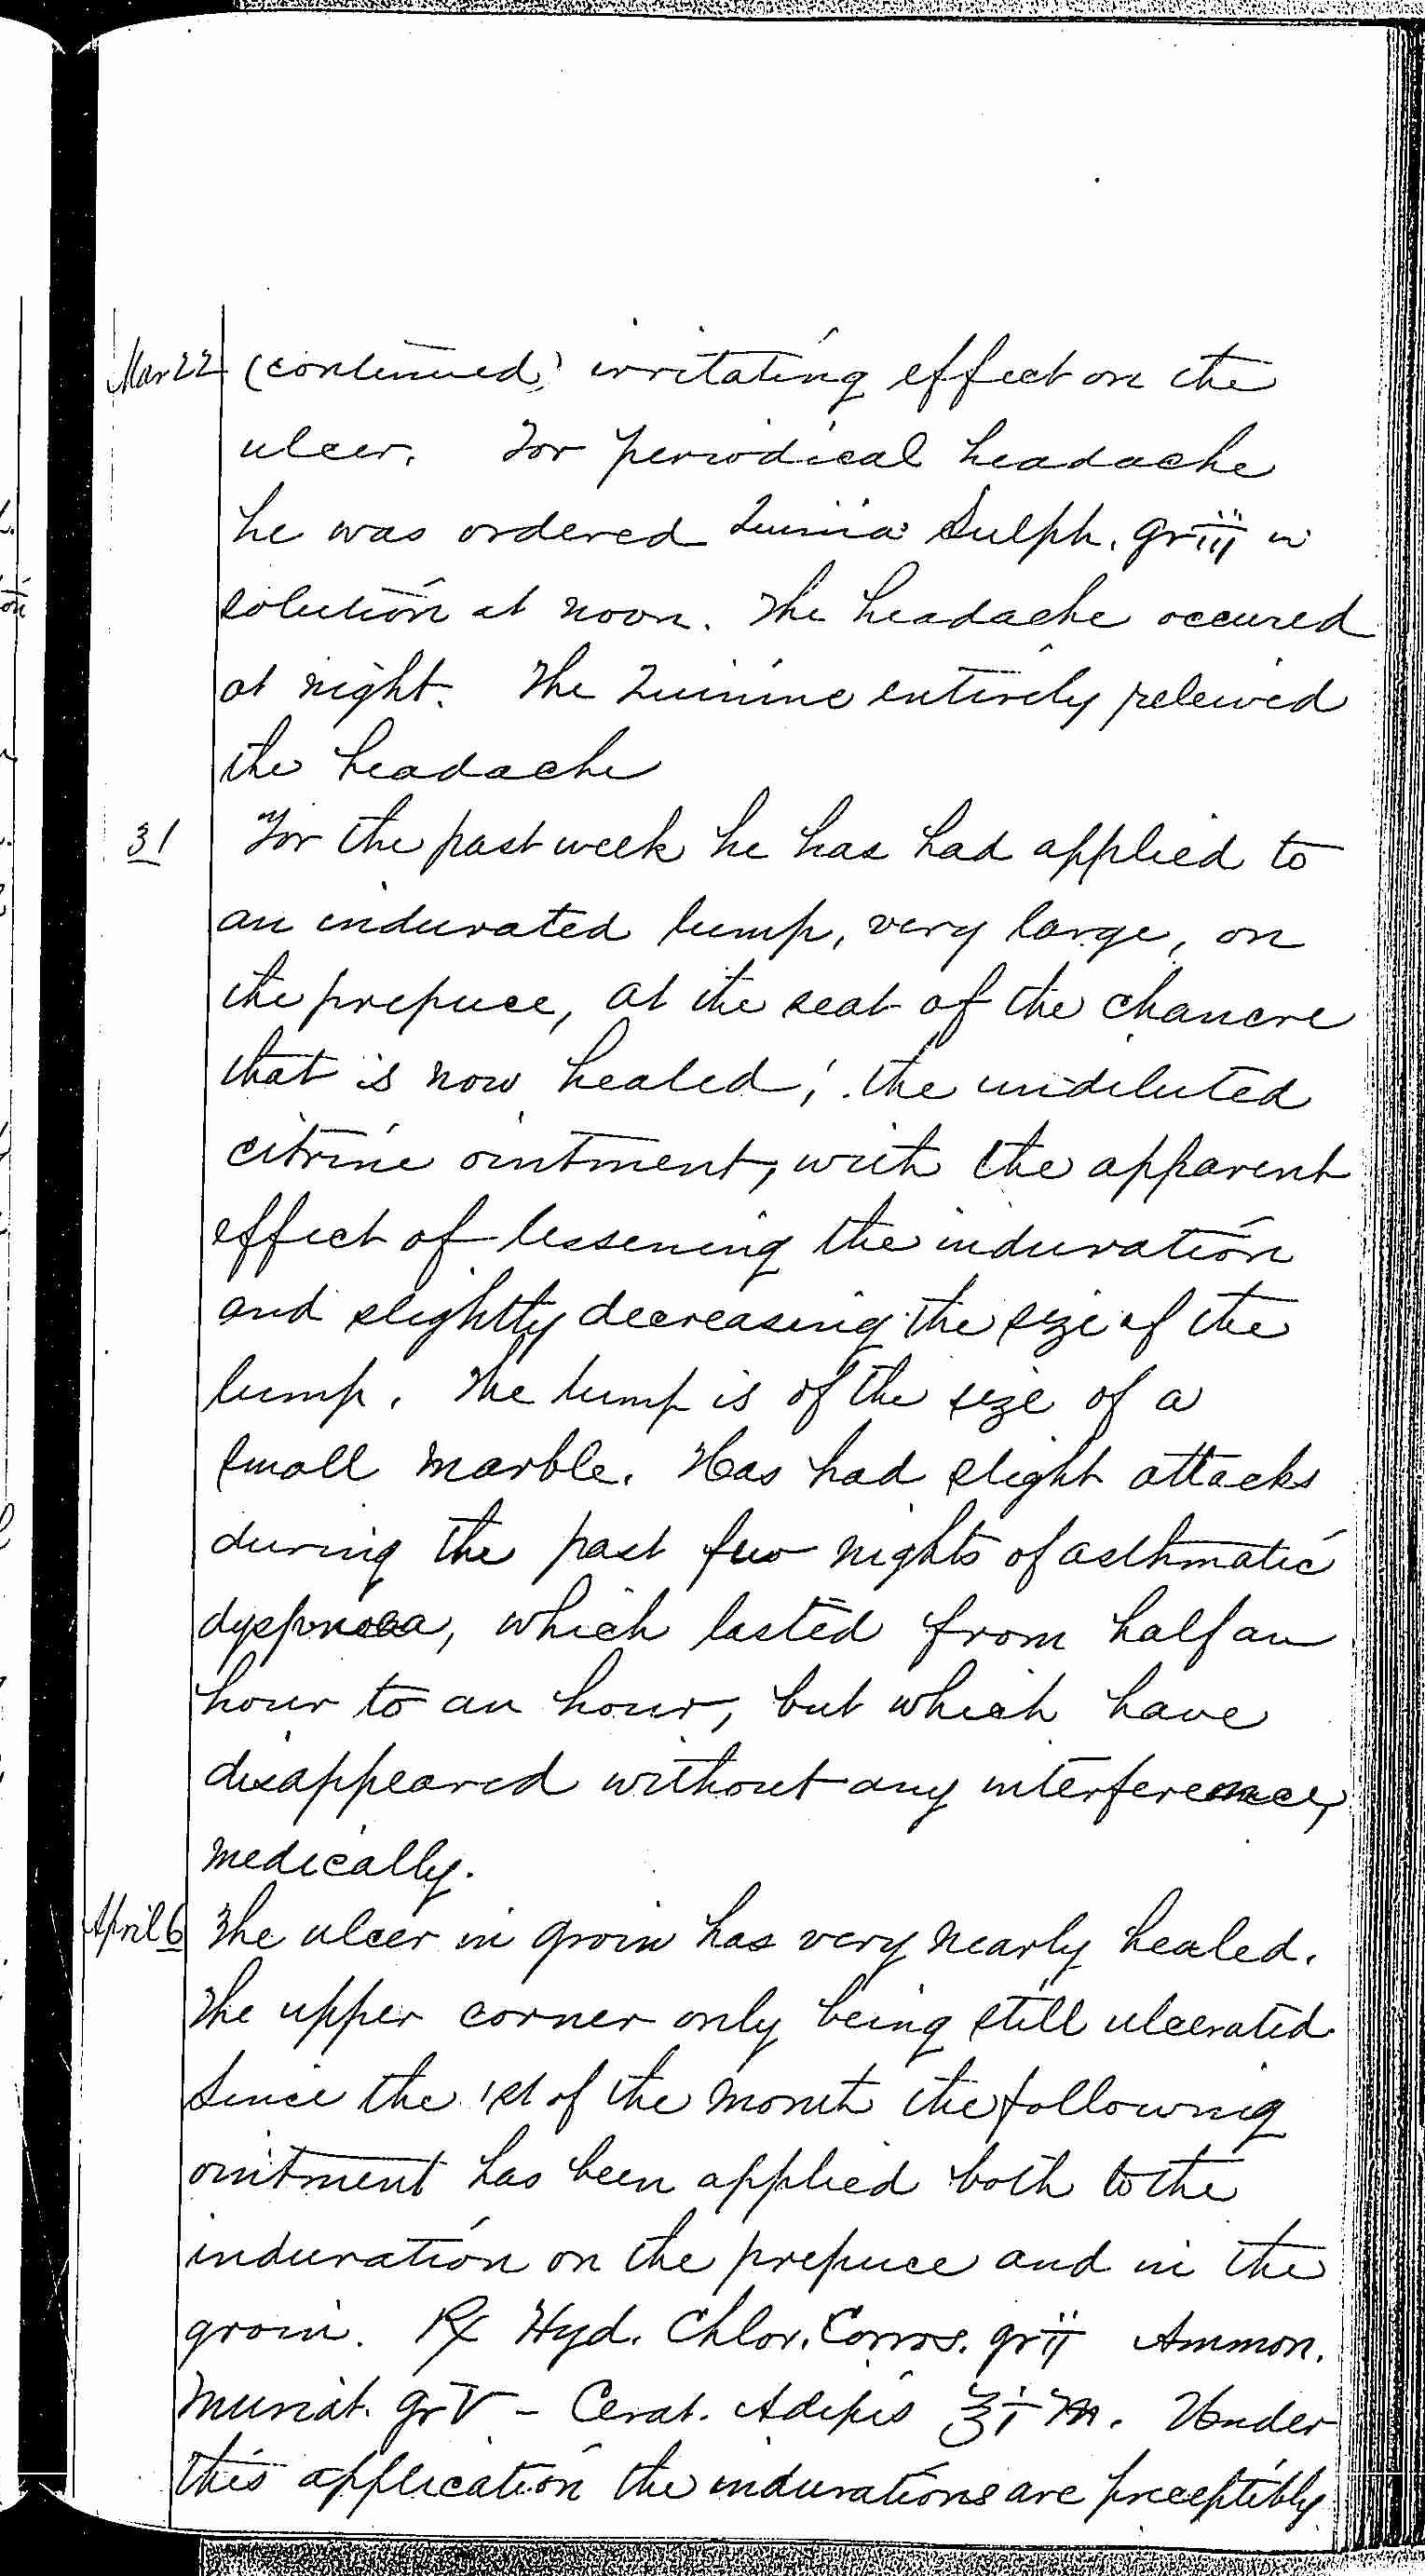 Mar 22 (continued) irritating effect on the
ulcer. For periodical headache
he was ordered Quinia Sulph. gr iii in
solution at noon. The headache occured
at night. The Quinine entirely releived
the headache
31 For the past week he has had applied to
an indurated lump, very large, on
the prepuce, at the seat of the chancre
that is now healed; the undiluted
citrine ointment, with the apparent
effect of lessening the induration
and slightly decreasing the size of the
lump. The lump is of the size of a
small marble. Has had slight attacks
during the past few nights of asthmatic
dyspnoea, which lasted from half an
hour to an hour, but which have
disappeared without any interference,
medically.
April 6 The ulcer in groin has very nearly healed.
The upper corner only being still ulcerated.
Since the 1st of the month the following
ointment has been applied both to the
induration on the prepuce and in the
groin. ℞ Hyd. Chlor. Corros. gr ii Ammon.
Muriat. gr V – Cerat. Adipis ℥i M. Under
this application the indurations are preceptibly